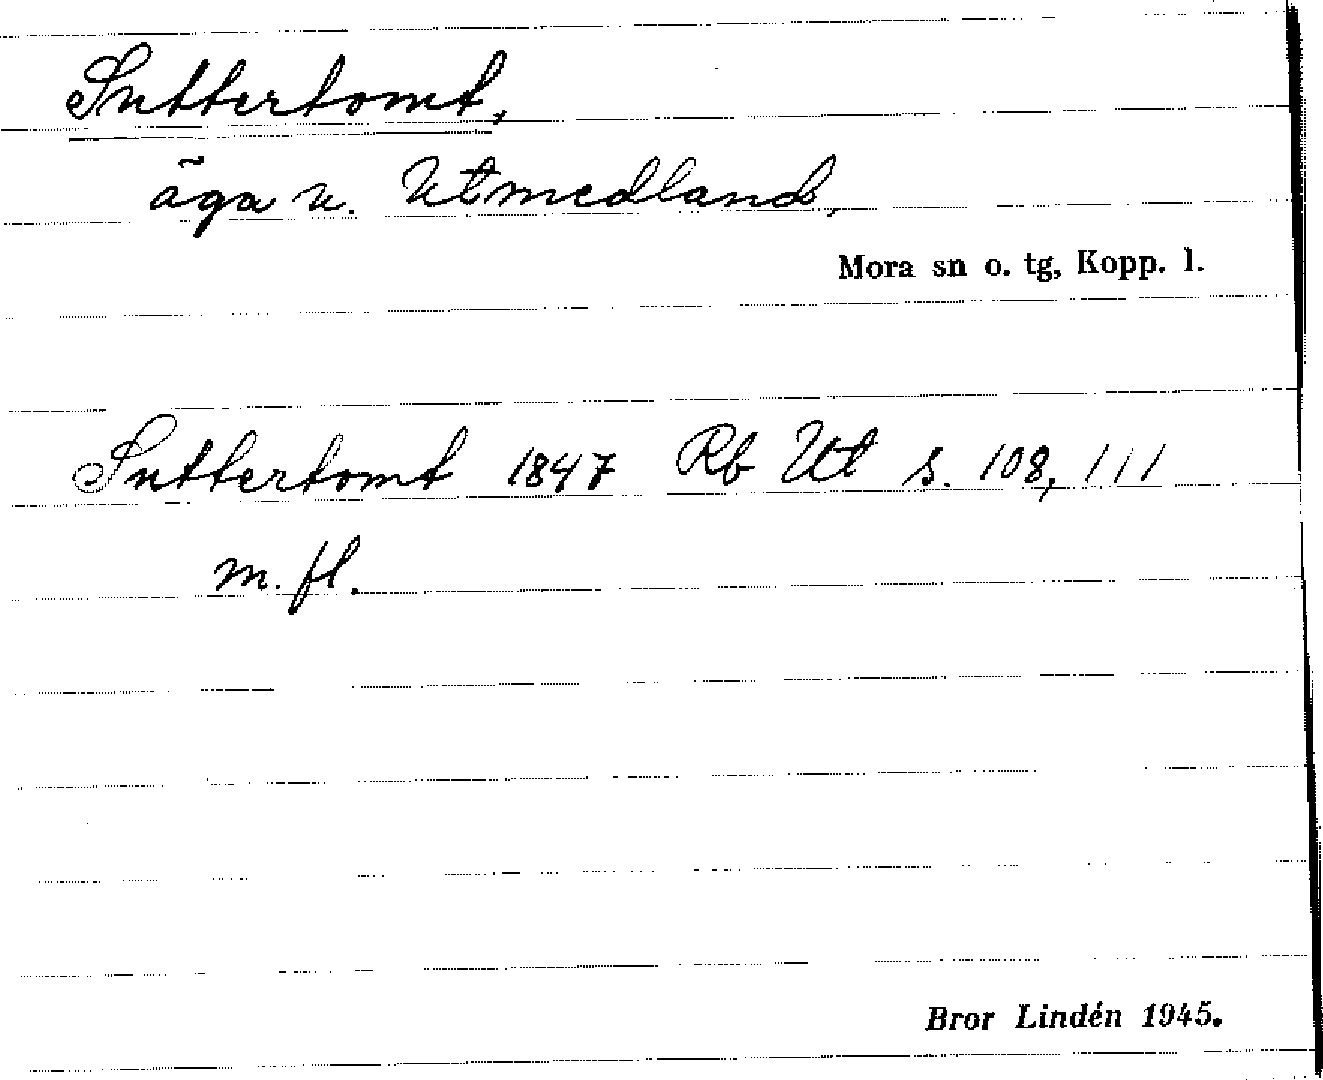 Suttertomt,
äga v. Utmedland,
Mora sn o. tg, Kopp. l.
Suttertomt 1847 Rb Ut s. 108, 111
m. fl.
Bror Lindén 1945.